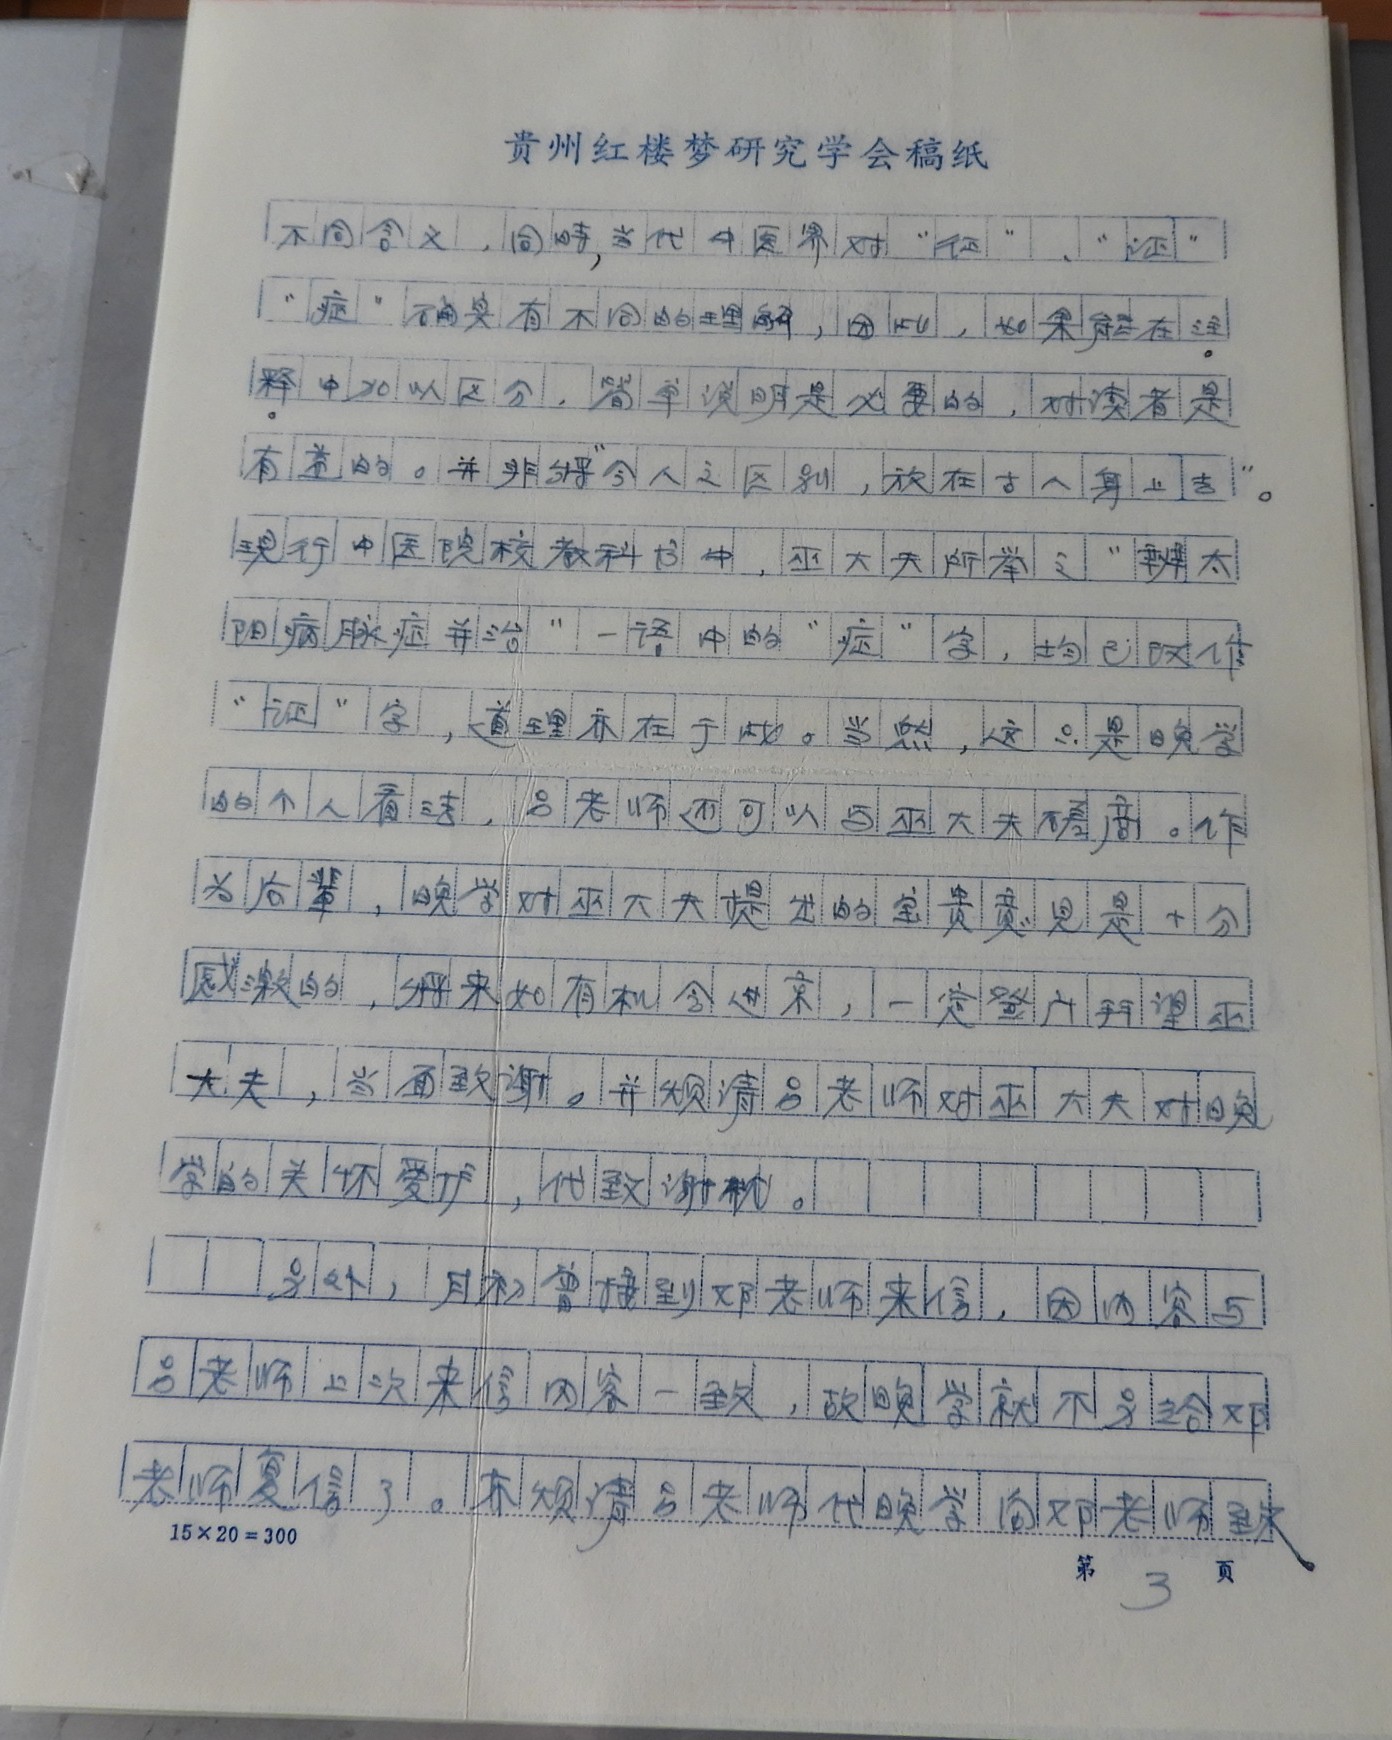 贵州红楼梦研究学会稿纸
不同含义，同時，当代中医界对“征”、“证”
“症”确实有不同的理解，因此，如果能在注
释中加以区分，简单说明是必要的，对读者是
有益的。并非将“今人之区别，放在古人身上去”。
现行中医院校教科书中，巫大夫所举之“辨太
阳病脉症并治”一语中的“症”字，均已改作
“证”字，道理亦在于此。当然，这只是晚学
的个人看法，吕老师还可以与巫大夫磋商。作
为后辈，晚学对巫大夫提出的宝贵意见是十分
感激的，将来如有机会进京，一定登户拜望巫
大夫，当面致谢。并烦请吕老师对巫大夫对晚
学的关怀爱护，代致谢忱。
另外，月初曾接到邓老师来信，因内容与
吕老师上次来信内容一致，故晚学就不另给邓
老师复信了。亦烦请吕老师代晚学向邓老师致
15×20=300
第 3 页